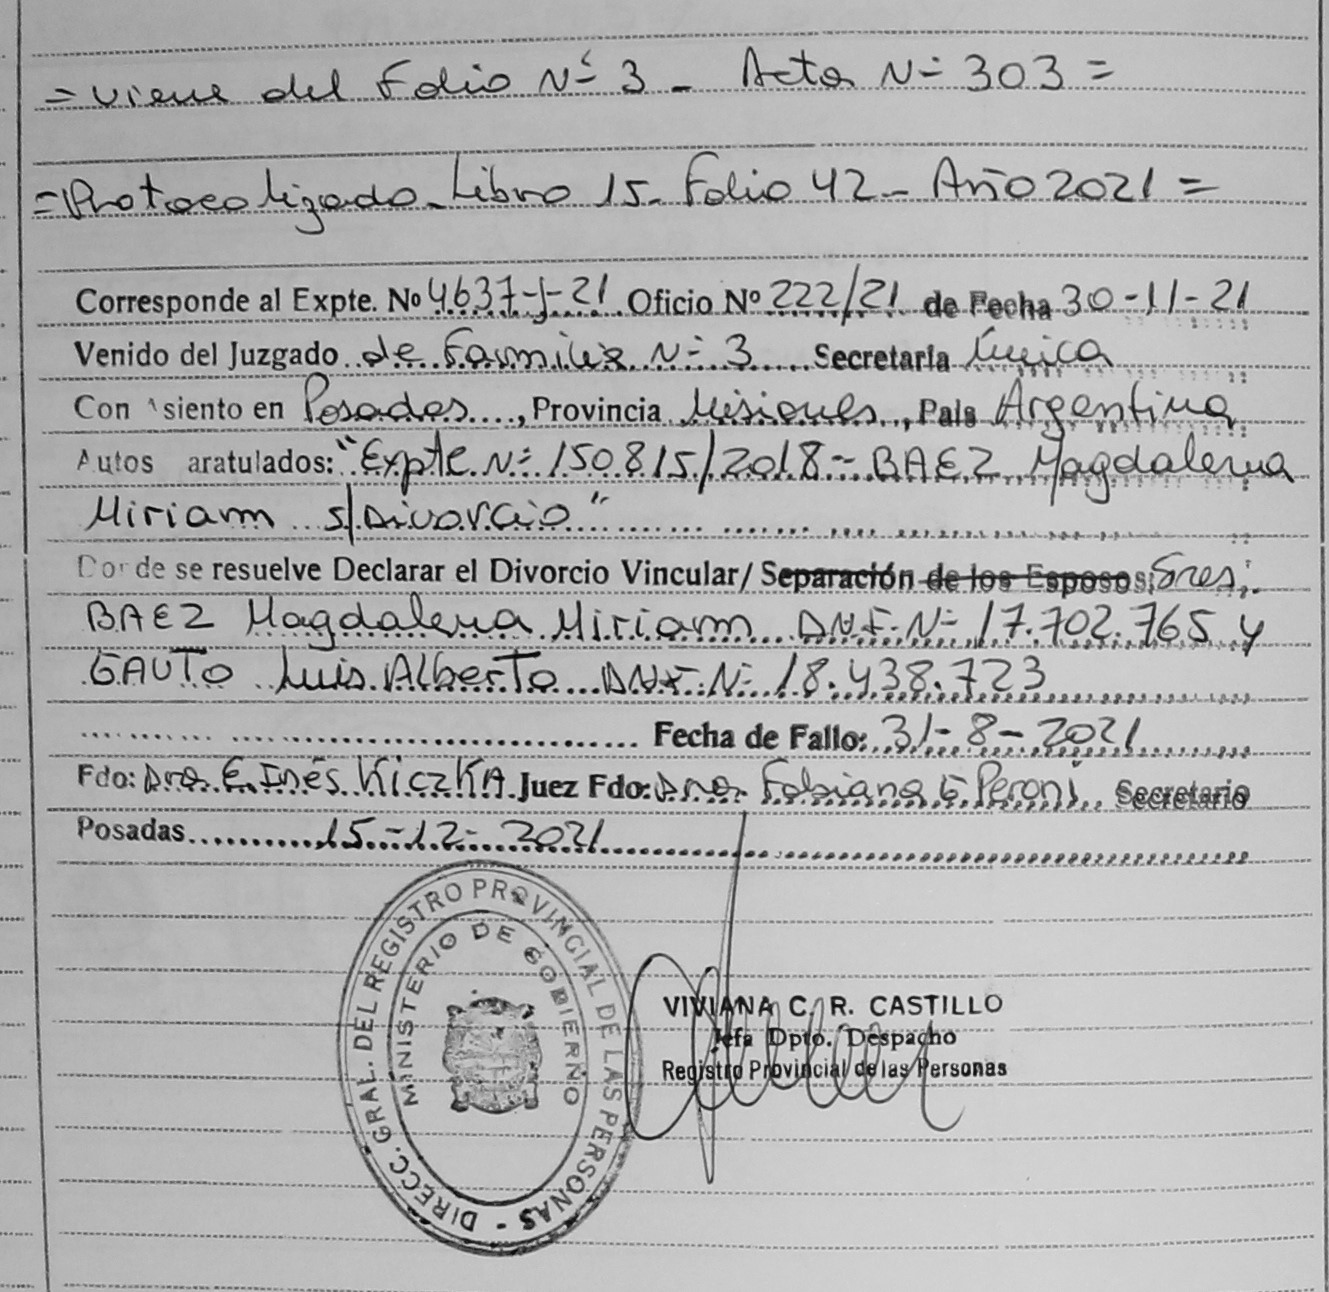 = Viene del Folio Nº 3 - Acta Nº 303 =
= Protocolizado - Libro 15 - Folio 42 - Año 2021 =
Corresponde al Expte. Nº 4637-J-21 Oficio Nº 222/21 de Fecha 30-11-21
Venido del Juzgado de Familia Nº 3 Secretaría Única
Con Asiento en Posadas, Provincia Misiones, País Argentina
Autos caratulados: "Expte. Nº 150815/2018 - BAEZ Magdalena
Miriam s/Divorcio"
Donde se resuelve Declarar el Divorcio Vincular/ Separación de los Esposos: Sres.
BAEZ Magdalena Miriam DNI Nº 17.702.765 y
GAUTO Luis Alberto DNI Nº 18.438.723
Fecha de Fallo: 31-8-2021
Fdo: Dra. E. Inés KiczKA Juez Fdo: Dra. Fabiana G Peroni Secretario
Posadas 15-12-2021
DIRECC. GRAL. DEL REGISTRO PROVINCIAL DE LAS PERSONAS -
MINISTERIO DE GOBIERNO
VIVIANA C. R. CASTILLO
Jefa Dpto. Despacho
Registro Provincial de las Personas